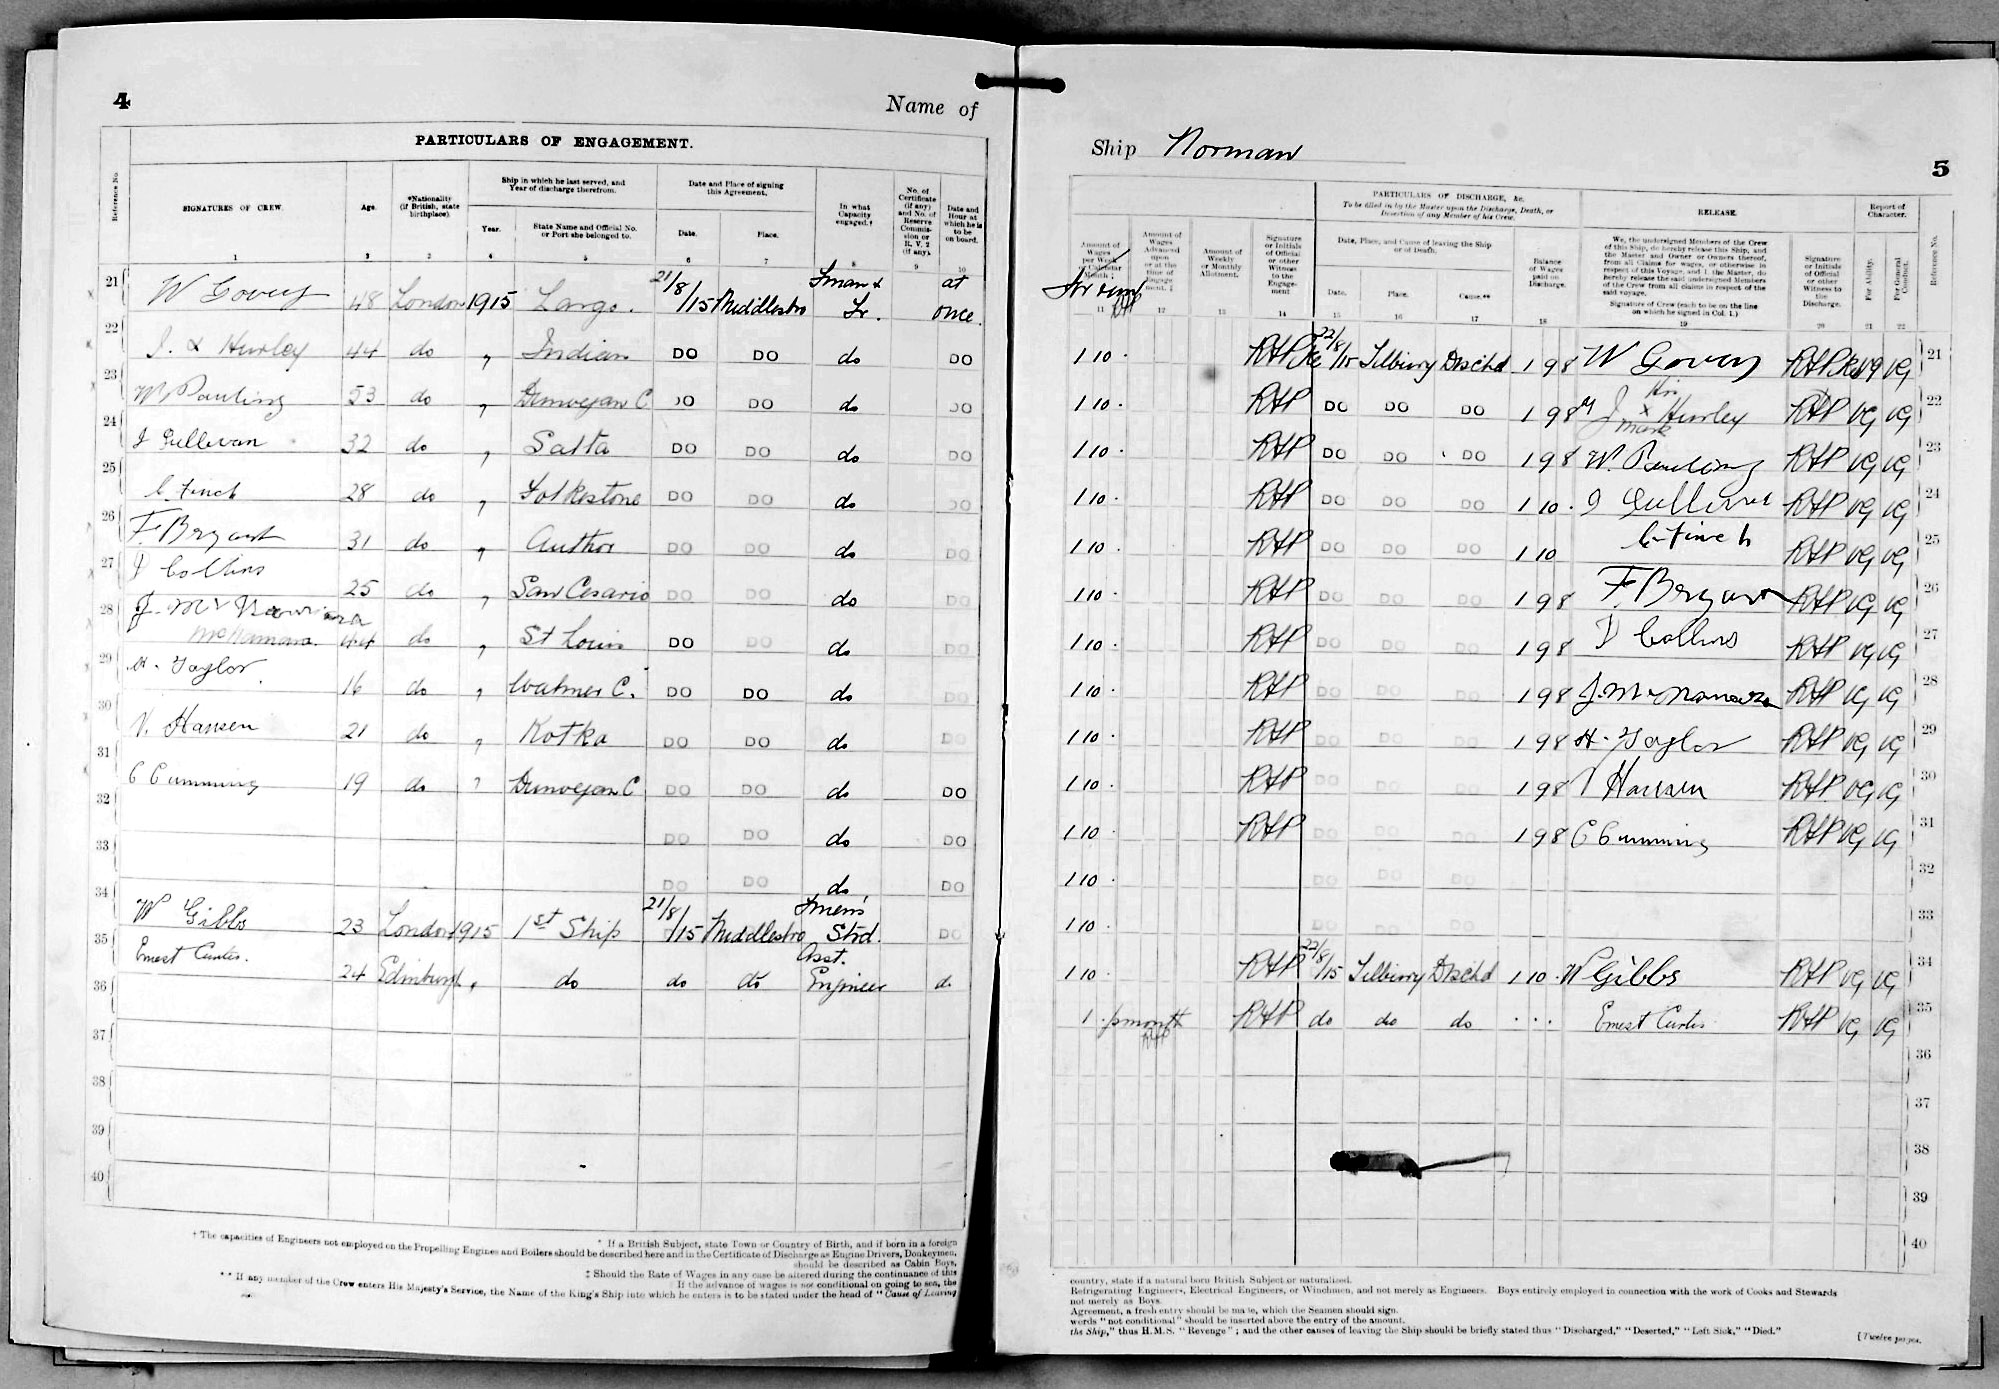 4
Name of
PARTICULARS OF ENGAGEMENT.
Reference No.
SIGNATURES OF CREW.
Age.
*Nationality (if British, state birthplace).
Ship in which he last served, and Year of discharge therefrom.
Year.
State Name and Official No. or Port she belonged to.
Date and Place of signing this Agreement.
Date.
Place.
In what Capacity engaged.†
No. of Certificate (if any) and No. of Reserve Commission or R.V. 2 (if any).
Date and Hour at which he is to be on board.
1 3 2 4 5 6 7 8 9 10
21 W Govey 48 London 1915 Largo. 21/8/15 Middlesbro Fman & Tr. at once.
22 J. x Hurley 44 do " Indian DO DO do DO
23 W Pauling 53 do " Dunvegan C DO DO do DO
24 J Sullivan 32 do " Salta DO DO do DO
25 C Finch 28 do " Folkestone DO DO do DO
26 F. Bryant 31 do " Author DO DO do DO
27 J Collins 25 do " San Cesario DO DO do DO
28 J. McNamara
McNamara. 44 do " St Louis DO DO do DO
29 H. Taylor. 16 do " Walmer C. DO DO do DO
30 V. Hansen 21 do " Kotka DO DO do DO
31 C Cumming 19 do " Dunvegan C DO DO do DO
32 DO DO do DO
33 DO DO do DO
34 W Gibbs 23 London 1915 1st Ship 21/8/15 Middlesbro Fmen's Strd. DO
35 Ernest Curtis. 24 Edinburgh " do do do Asst. Engineer do
36
37
38
39
40
* If a British Subject, state Town or Country of Birth, and if born in a foreign
† The capacities of Engineers not employed on the Propelling Engines and Boilers should be described here and in the Certificate of Discharge as Engine Drivers, Donkeymen,
should be described as Cabin Boys,
‡ Should the Rate of Wages in any case be altered during the continuance of this
If the advance of wages is not conditional on going to sea, the
** If any member of the Crew enters His Majesty's Service, the Name of the King's Ship into which he enters is to be stated under the head of "Cause of Leaving
Ship Norman
5
Amount of Wages per Week or Calendar Month ;
Amount of Wages Advanced upon or at the time of Engagement. ‡
Amount of Weekly or Monthly Allotment.
Signature or Initials of Official or other Witness to the Engagement
PARTICULARS OF DISCHARGE, &c.
To be filled in by the Master upon the Discharge, Death, or Desertion of any Member of his Crew.
Date, Place, and Cause of leaving the Ship or of Death.
Date.
Place.
Cause.**
Balance of Wages paid on Discharge.
RELEASE.
We, the undersigned Members of the Crew of this Ship, do hereby release this Ship, and the Master and Owner or Owners thereof, from all Claims for wages, or otherwise in respect of this Voyage, and I, the Master, do hereby release the said undersigned Members of the Crew from all claims in respect of the said voyage.
Signature of Crew (each to be on the line on which he signed in Col. 1.)
Signature or Initials of Official or other Witness to the Discharge.
Report of Character.
For Ability.
For General Conduct.
Reference No.
11 12 13 14 15 16 17 18 19 20 21 22
1 10 . 22/8/15 Tilbury Dischd 1 9 8 W Govey VG VG 21
1 10 . RHP DO DO DO 1 9 8 J his x mark Hurley RHP VG VG 22
1 10 . RHP DO DO DO 1 9 8 W. Pauling RHP VG VG 23
1 10 . RHP DO DO DO 1 10 . J Sullivan RHP VG VG 24
1 10 . RHP DO DO DO 1 10 C Finch RHP VG VG 25
1 10 . RHP DO DO DO 1 9 8 F. Bryant RHP VG VG 26
1 10 . RHP DO DO DO 1 9 8 J Collins RHP VG VG 27
1 10 . RHP DO DO DO 1 9 8 J. McNamara RHP VG VG 28
1 10 . RHP DO DO DO 1 9 8 H. Taylor RHP VG VG 29
1 10 . RHP DO DO DO 1 9 8 V Hansen RHP VG VG 30
1 10 . RHP DO DO DO 1 9 8 C Cumming RHP VG VG 31
1 10 . DO DO DO 32
1 10 . DO DO DO 33
1 10 . RHP 22/8/15 Tilbury Dischd 1 10 . W Gibbs RHP VG VG 34
1 . p month RHP RHP do do do . . . Ernest Curtis RHP VG VG 35
36
37
38
39
40
country, state if a natural born British Subject or naturalized.
Refrigerating Engineers, Electrical Engineers, or Winchmen, and not merely as Engineers. Boys entirely employed in connection with the work of Cooks and Stewards
not merely as Boys.
Agreement, a fresh entry should be made, which the Seamen should sign.
words "not conditional" should be inserted above the entry of the amount.
the Ship," thus H.M.S. "Revenge"; and the other causes of leaving the Ship should be briefly stated thus "Discharged," "Deserted," "Left Sick," "Died."
[Twelve pages.